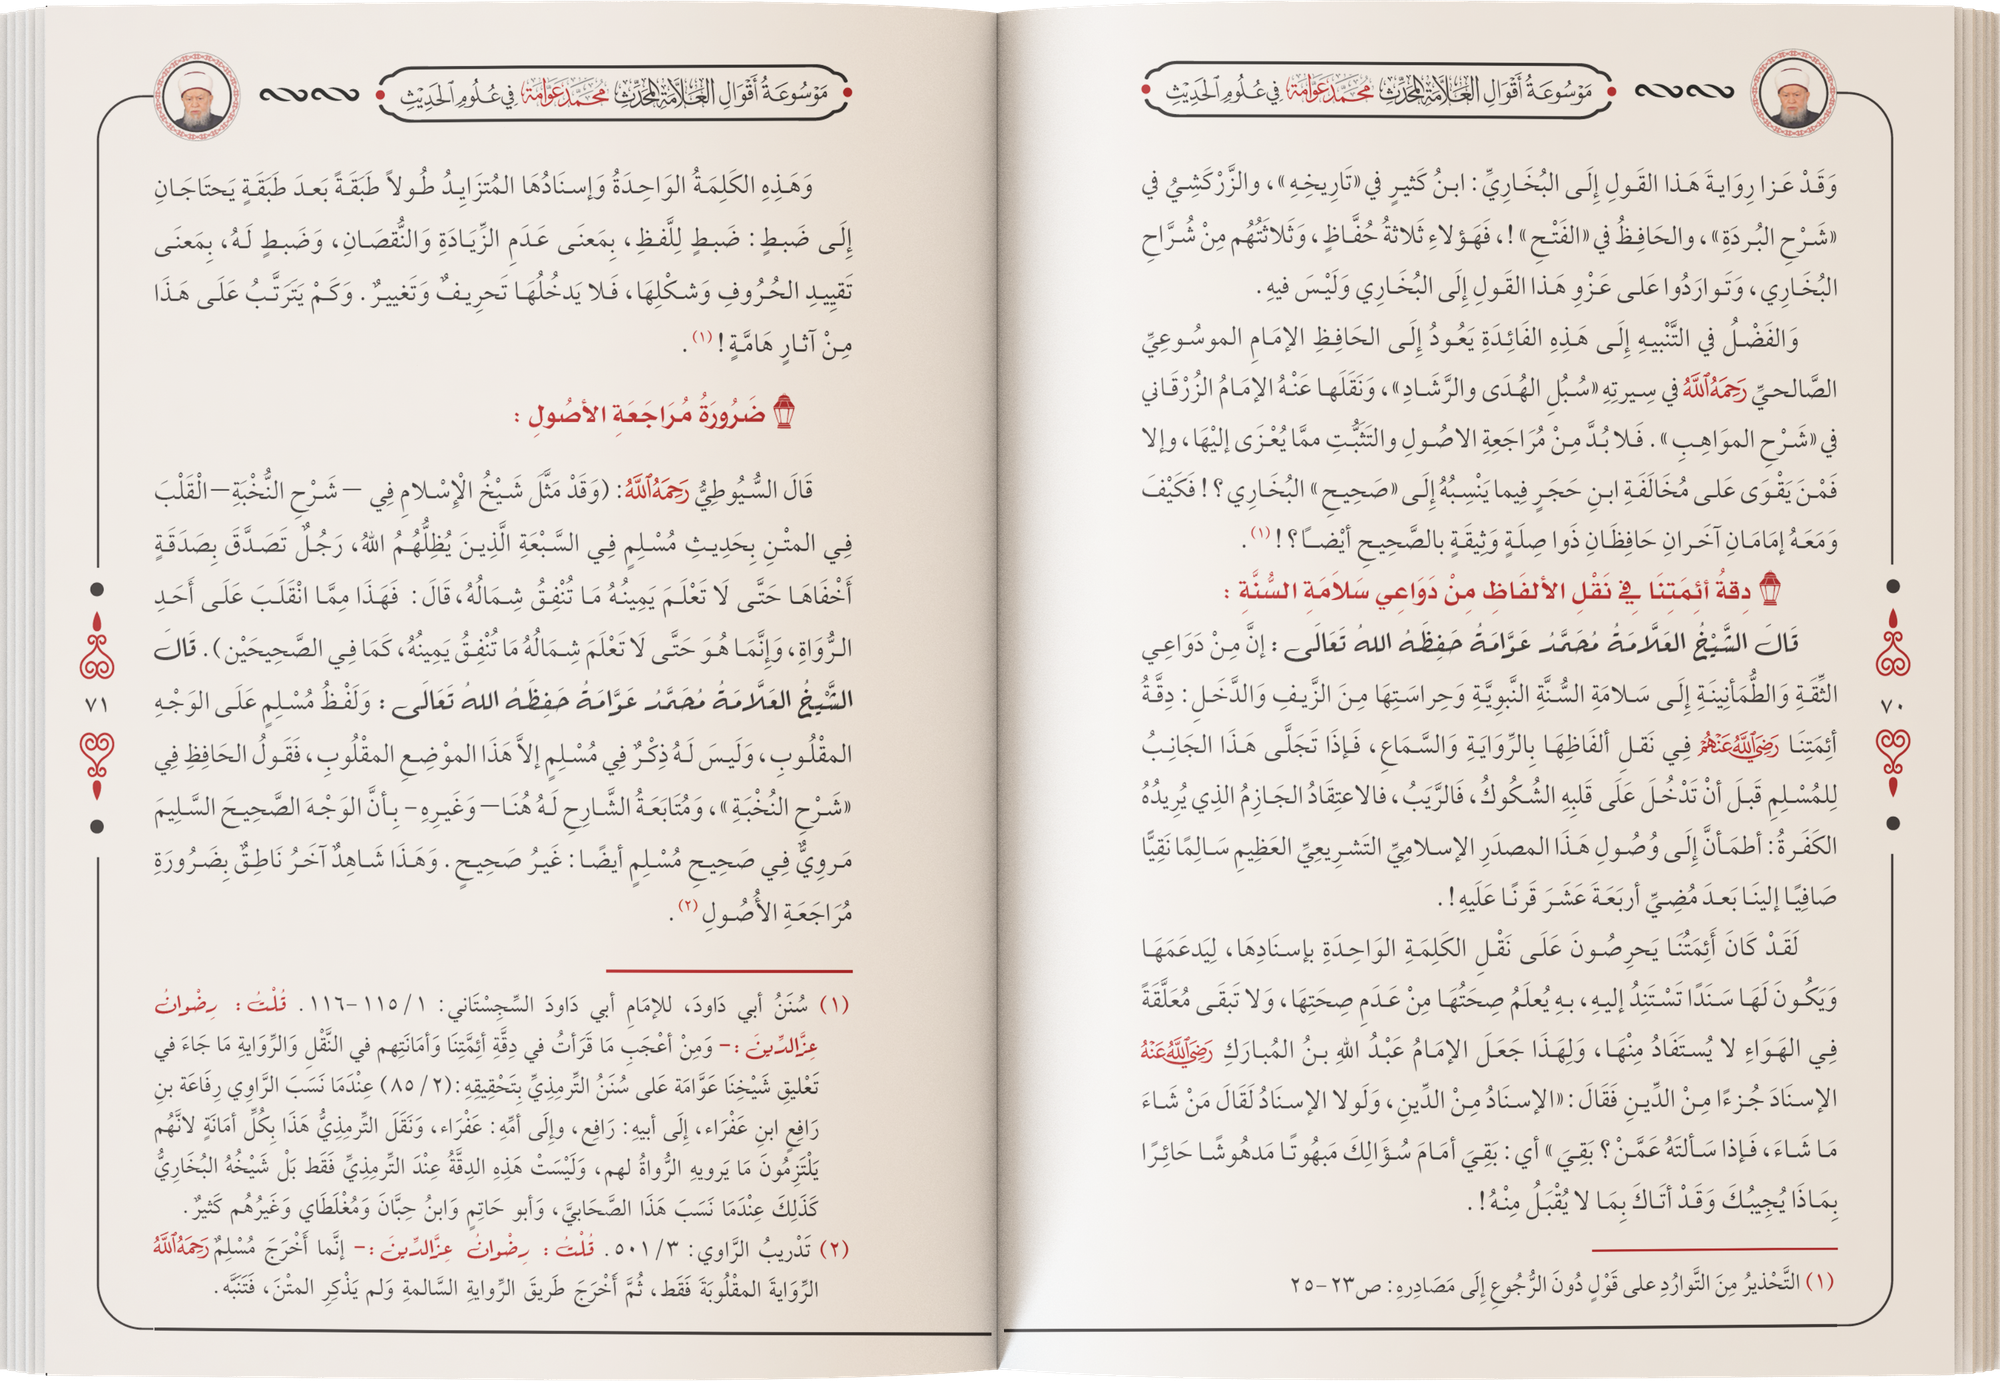 مَوْسُوعَةُ أَقْوَالِ العَلَّامَةِ المُحَدِّثِ مُحَمَّد عَوَّامَة فِي عُلُومِ الحَدِيثِ
وَقَدْ عَزا رِوَايةَ هَذا القَولِ إِلَى البُخَارِيِّ: ابنُ كَثيرٍ في «تَارِيخِهِ»، والزَّرْكَشِيُ في
«شَرْحِ البُردَةِ»، والحَافِظُ في «الفَتْحِ»!، فَهَؤلاءِ ثَلاثةُ حُفَّاظٍ، وَثَلاثَتُهُم مِنْ شُرَّاحِ
البُخَارِي، وَتَوارَدُوا عَلى عَزْوِ هَذا القَولِ إِلَى البُخَارِي وَلَيْسَ فيهِ.
وَالفَضْلُ في التَّنْبيهِ إِلَى هَذِهِ الفَائِدَةِ يَعُودُ إِلَى الحَافِظِ الإمَامِ الموسُوعِيِّ
الصَّالحيِّ رَحِمَهُ اللَّهُ في سِيرتِهِ «سُبُلِ الهُدَى والرَّشَادِ»، وَنَقَلَهَا عَنْهُ الإمَامُ الزُرْقَاني
في «شَرْحِ المَواهِبِ». فَلا بُدَّ مِنْ مُرَاجَعِةِ الاصُولِ والتَثَبُّتِ ممَّا يُعْزَى إليْهَا، وإلا
فَمْنَ يَقْوَى عَلى مُخَالَفَةِ ابنِ حَجَرٍ فِيما يَنْسِبُهُ إِلَى «صَحِيحِ» البُخَارِي؟! فَكَيْفَ
وَمَعَهُ إمَامَانِ آخَرانِ حَافِظَانِ ذَوا صِلَةٍ وَثِيقَةٍ بالصَّحِيحِ أيْضًا؟!(١).
دِقةُ أئِمَتِنَا في نَقْلِ الألفَاظِ مِنْ دَوَاعِي سَلَامَةِ السُّنَّةِ:
قَالَ الشَّيْخُ العَلَّامَةُ مُحَمَّدُ عَوَّامَةُ حَفِظَهُ اللهُ تَعَالَى: إنَّ مِنْ دَوَاعِي
الثِّقَةِ وَالطُّمَأنِينَةِ إِلَى سَلامَةِ السُّنَّةِ النَّبوِيَّةِ وَحِراسَتِهَا مِنَ الزَّيفِ وَالدَّخَلِ: دِقَّةُ
أئِمَتِنَا رَضِيَ اللَّهُ عَنْهُمْ فِي نَقلِ ألفَاظِهَا بِالرِّوَايَةِ وَالسَّمَاعِ، فَإذَا تَجَلَّى هَذَا الجَانِبُ
لِلمُسْلِمِ قَبلَ أنْ تَدْخُلَ عَلَى قَلبِهِ الشُكُوكُ، فَالرَّيَبُ، فَالاعتِقَادُ الجَازِمُ الذِي يُرِيدُهُ
الكَفَرةُ: أطمَأنَّ إِلَى وُصُولِ هَذَا المصدَرِ الإسلامِيِّ التَشرِيعِيِّ العَظِيمِ سَالِمًا نَقِيًّا
صَافِيًا إلينَا بَعدَ مُضِيِّ أربَعَةَ عَشَرَ قَرنًا عَلَيهِ!.
لَقَدْ كَانَ أَئِمَتُنَا يَحرِصُونَ عَلَى نَقْلِ الكَلِمَةِ الوَاحِدَةِ بإسنَادِهَا، لِيَدعَمَهَا
وَيَكُونَ لَهَا سَنَدًا تَسْتَنِدُ إليهِ، بهِ يُعلَمُ صِحَتُهَا مِنْ عَدَمِ صِحَتِهَا، وَلا تَبقَى مُعَلَّقَةً
فِي الهَوَاءِ لا يُستَفَادُ مِنْهَا، وَلِهَذَا جَعَلَ الإمَامُ عَبْدُ اللهِ بنُ المُبارَكِ رَضِيَ اللَّهُ عَنْهُ
الإسنَادَ جُزءًا مِنَ الدِّينِ فَقَالَ: «الإسنَادُ مِنَ الدِّينِ، وَلَولا الإسنَادُ لَقَالَ مَنْ شَاءَ
مَا شَاءَ، فَإذا سَألتَهُ عَمَّنْ؟ بَقِيَ» أي: بَقِيَ أمَامَ سُؤَالِكَ مَبهُوتًا مَدهُوشًا حَائِرًا
بِمَاذَا يُجِيبُكَ وَقَدْ أتَاكَ بِمَا لا يُقْبَلُ مِنْهُ!.
(١) التَّحْذيرُ مِنَ التَّوارُدِ على قَوْلٍ دُونَ الرُّجُوعِ إِلَى مَصَادِرِهِ: ص٢٣-٢٥
٧٠
مَوْسُوعَةُ أَقْوَالِ العَلَّامَةِ المُحَدِّثِ مُحَمَّد عَوَّامَة فِي عُلُومِ الحَدِيثِ
وَهَذِهِ الكَلِمَةُ الوَاحِدَةُ وَإسنَادُهَا المُتزَايِدُ طُولاً طَبَقَةً بَعدَ طَبَقَةٍ يَحتَاجَانِ
إِلَى ضَبطٍ: ضَبطٍ لِلَّفظِ، بِمَعنَى عَدَمِ الزِّيَادَةِ وَالنُّقصَانِ، وَضَبطٍ لَهُ، بِمَعنَى
تَقيِيدِ الحُرُوفِ وَشكْلِهَا، فَلا يَدخُلُهَا تَحرِيفٌ وَتَغييرٌ. وَكَمْ يَتَرَتَّبُ عَلَى هَذَا
مِنْ آثارٍ هَامَّةٍ!(١).
ضَرُورَةُ مُرَاجَعَةِ الأصُولِ:
قَالَ السُّيُوطِيُّ رَحِمَهُ اللَّهُ: (وَقَدْ مَثَّلَ شَيْخُ الْإِسْلامِ فِي —شَرْحِ النُّخْبَةِ— الْقَلْبَ
فِي المتْنِ بِحَدِيثِ مُسْلِمٍ فِي السَّبْعَةِ الَّذِينَ يُظِلُّهُمُ اللهُ، رَجُلٌ تَصَدَّقَ بِصَدَقَةٍ
أَخْفَاهَا حَتَّى لَا تَعْلَمَ يَمِينُهُ مَا تُنْفِقُ شِمَالُهُ، قَالَ: فَهَذَا مِمَّا انْقَلَبَ عَلَى أَحَدِ
الرُّوَاةِ، وَإِنَّمَا هُوَ حَتَّى لَا تَعْلَمَ شِمَالُهُ مَا تُنْفِقُ يَمِينُهُ، كَمَا فِي الصَّحِيحَيْنِ). قَالَ
الشَّيْخُ العَلَّامَةُ مُحَمَّدُ عَوَّامَةُ حَفِظَهُ اللهُ تَعَالَى: وَلَفْظُ مُسْلِمٍ عَلَى الوَجْهِ
المقْلُوبِ، وَلَيسَ لَهُ ذِكْرٌ فِي مُسْلِمٍ إلاَّ هَذَا الموْضِعِ المقْلُوبِ، فَقَولُ الحَافِظِ فِي
«شَرْحِ النُخْبَةِ»، وَمُتَابَعَةُ الشَّارِحِ لَهُ هُنَا— وَغَيرِهِ- بِأنَّ الوَجْهَ الصَّحِيحَ السَّلِيمَ
مَروِيٌّ فِي صَحِيحِ مُسْلِمٍ أيضًا: غَيرُ صَحِيحٍ. وَهَذَا شَاهِدٌ آخَرُ نَاطِقٌ بِضَرُورَةِ
مُرَاجَعَةِ الأُصُولِ(٢).
(١) سُنَنُ أبي دَاودَ، للإمَامِ أبي دَاودَ السِّجِسْتَاني: ١/ ١١٥-١١٦. قُلْتُ: رِضْوانُ
عِزّالدِّينَ:- وَمِنْ أعْجَبِ مَا قَرَأتُ في دِقَّةِ أئِمَّتِنَا وَأمَانَتِهِم في النَّقْلِ وَالرِّوَايَةِ مَا جَاءَ في
تَعْلِيقِ شَيْخِنَا عَوَّامَة عَلى سُنَنُ التِّرمِذِيِّ بِتَحْقِيقِهِ:(٢/ ٨٥) عِنْدَمَا نَسَبَ الرَّاوِي رِفَاعَة بنِ
رَافِعٍ ابنِ عَفْرَاء، إِلَى أبيهِ: رَافِعٍ، وإلَى أمِّهِ: عَفْرَاء، وَنَقَلَ التِّرمِذِيُّ هَذَا بِكُلِّ أمَانَةٍ لانَّهُم
يَلْتَزِمُونَ مَا يَرويهِ الرُّواةُ لهم، وَلَيْسَتْ هَذِهِ الدِقَّةُ عِنْدَ التِّرمِذِيِّ فَقَط بَلْ شَيْخُهُ البُخَارِيُّ
كَذَلِكَ عِنْدَمَا نَسَبَ هَذَا الصَّحَابيَّ، وَأبو حَاتِمٍ وَابنُ حِبَّانَ وَمُغْلَطَاي وَغَيرُهُم كَثيرٌ.
(٢) تَدْريبُ الرَّاوي: ٣/ ٥٠١. قُلْتُ: رِضْوانُ عِزّالدِّينَ:- إنَّما أخْرَجَ مُسْلِمٌ رَحِمَهُ اللَّهُ
الرِّوَايَةَ المقْلُوبَةَ فَقَط، ثُمَّ أَخْرَجَ طَريقَ الرِّوايةِ السَّالمةِ وَلم يَذْكِرِ المتْنَ، فَتَنَبَّه.
٧١